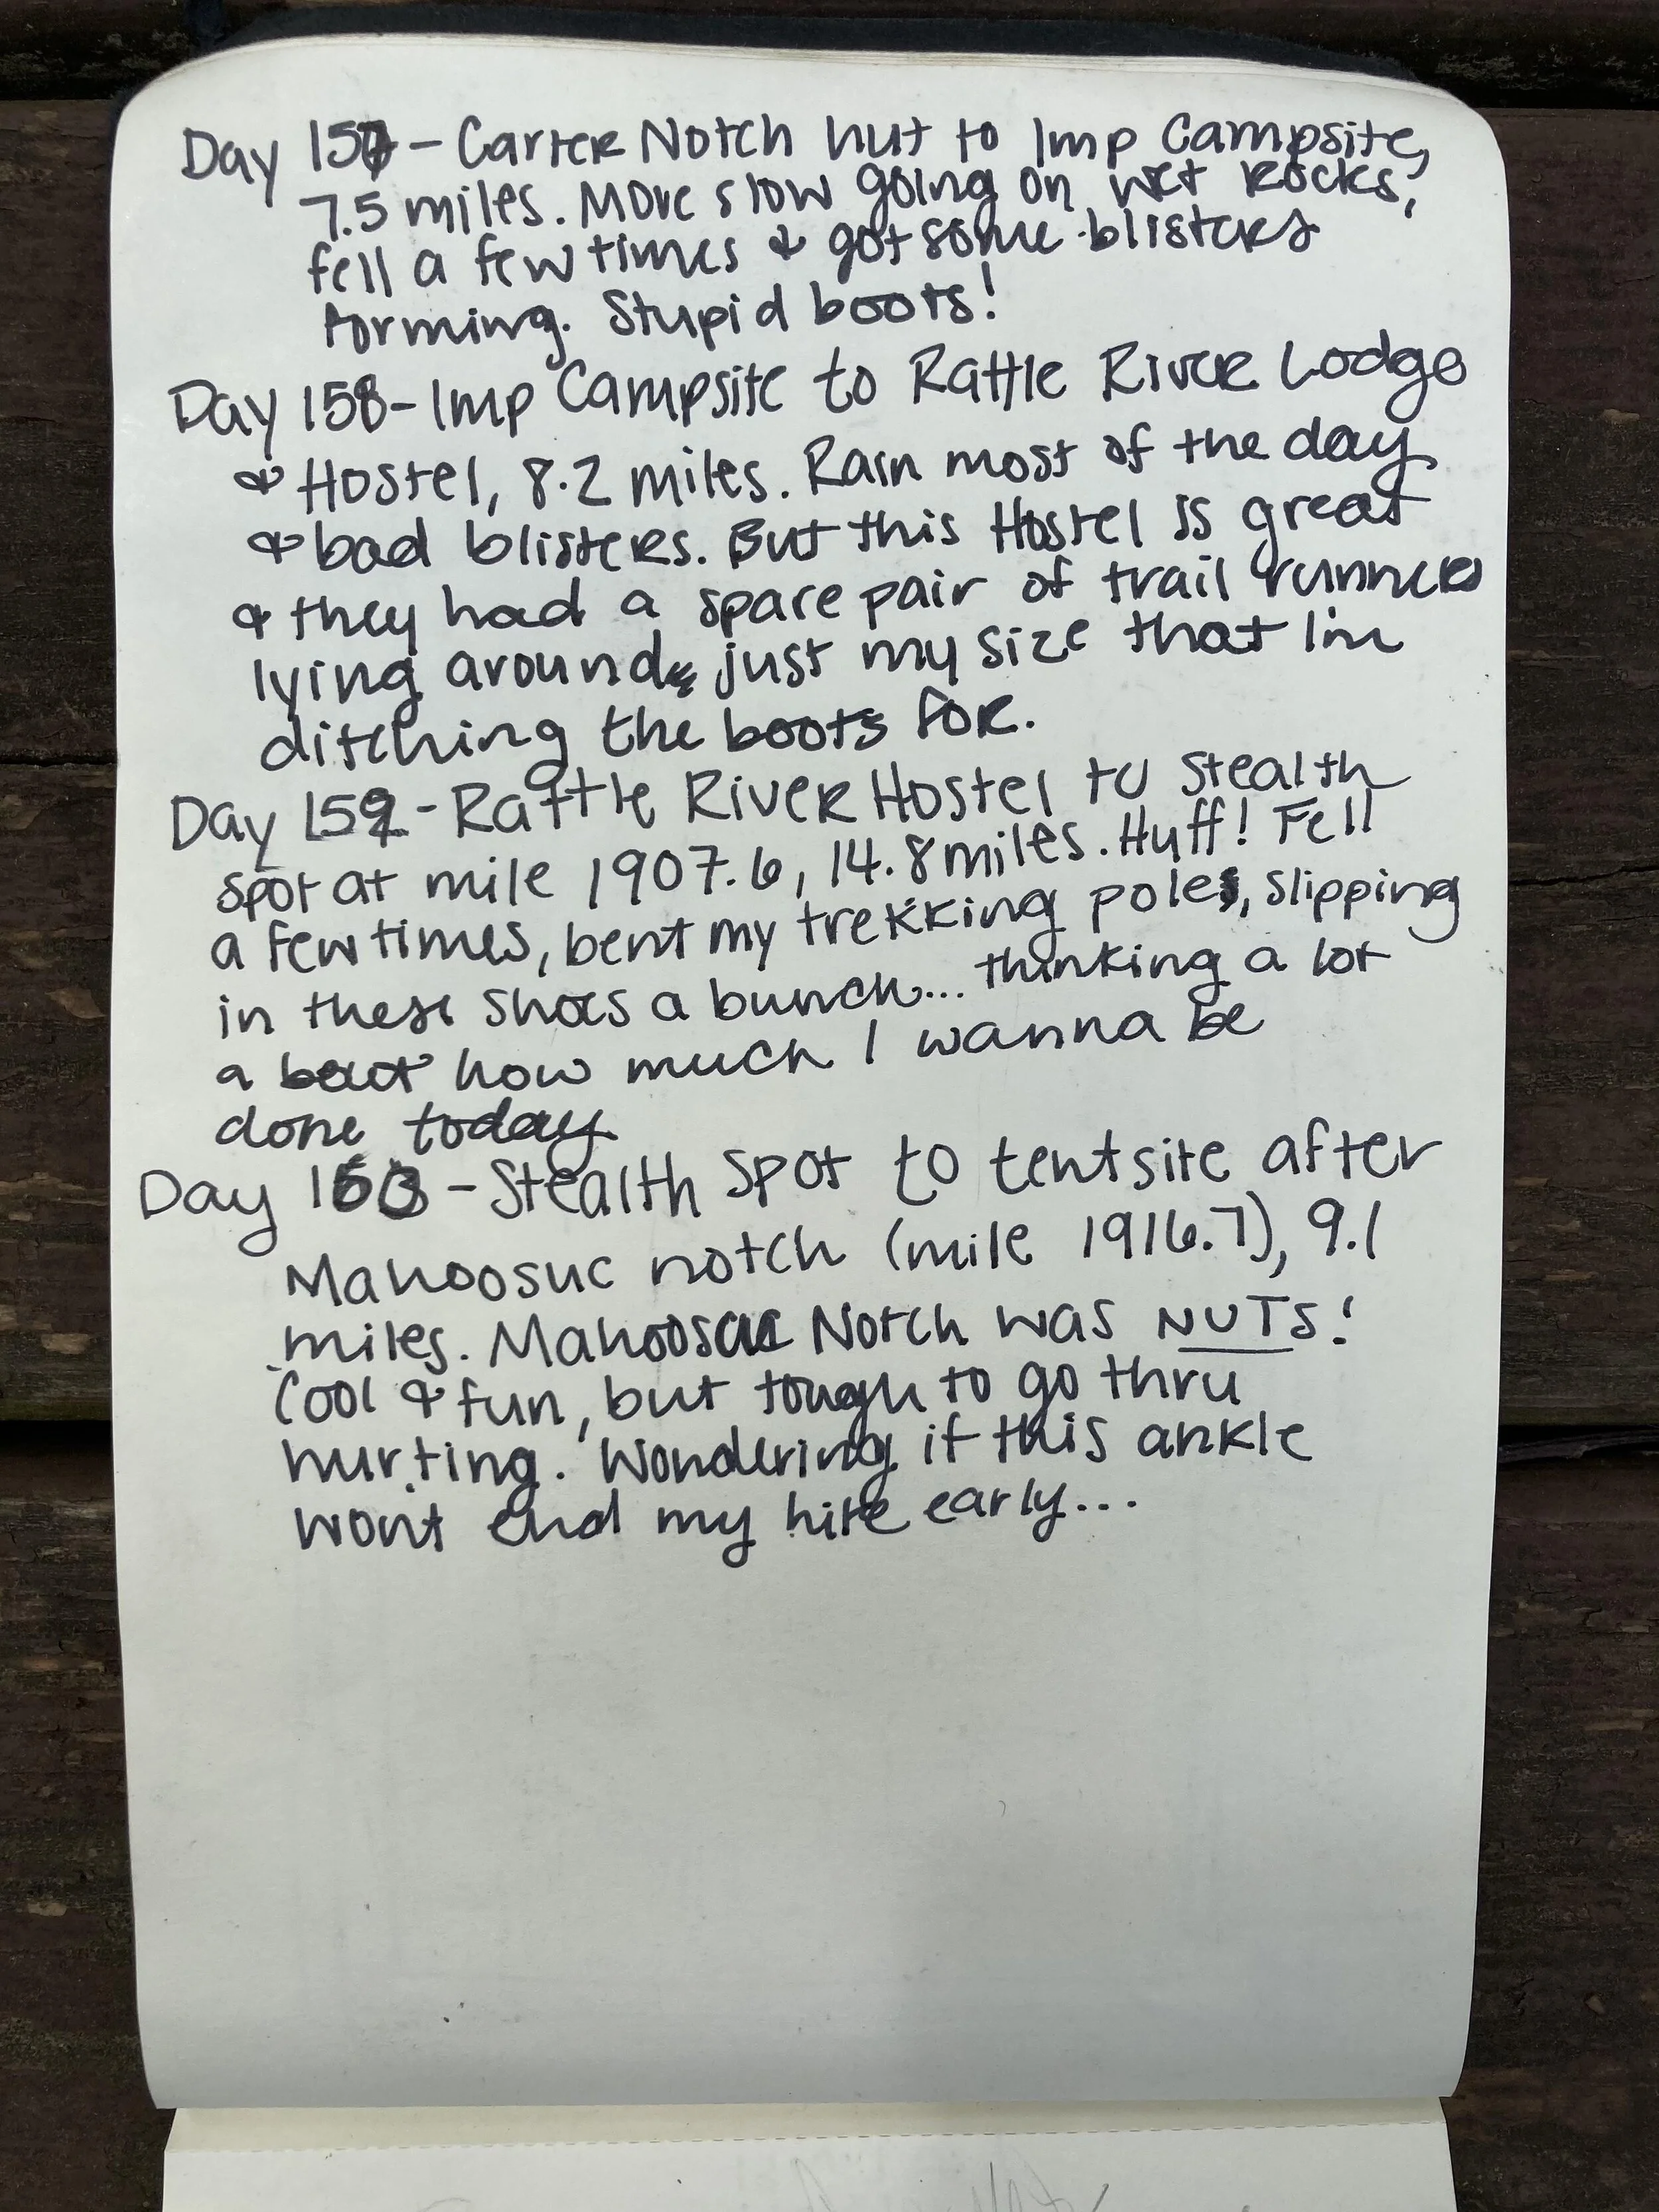 Day 157 - Carter Notch hut to Imp Campsite,
7.5 miles. More slow going on wet rocks,
fell a few times & got some blisters
forming. Stupid boots!
Day 158 - Imp Campsite to Rattle River Lodge
& Hostel, 8.2 miles. Rain most of the day
& bad blisters. But this Hostel is great
& they had a spare pair of trail runners
lying around, just my size that I'm
ditching the boots for.
Day 159 - Rattle River Hostel to stealth
spot at mile 1907.6, 14.8 miles. Huff! Fell
a few times, bent my trekking poles, slipping
in these shoes a bunch... thinking a lot
about how much I wanna be
done today
Day 160 - Stealth spot to tentsite after
Mahoosuc notch (mile 1916.7), 9.1
miles. Mahoosuc Notch was NUTS!
Cool & fun, but tough to go thru
hurting. Wondering if this ankle
won't end my hike early...